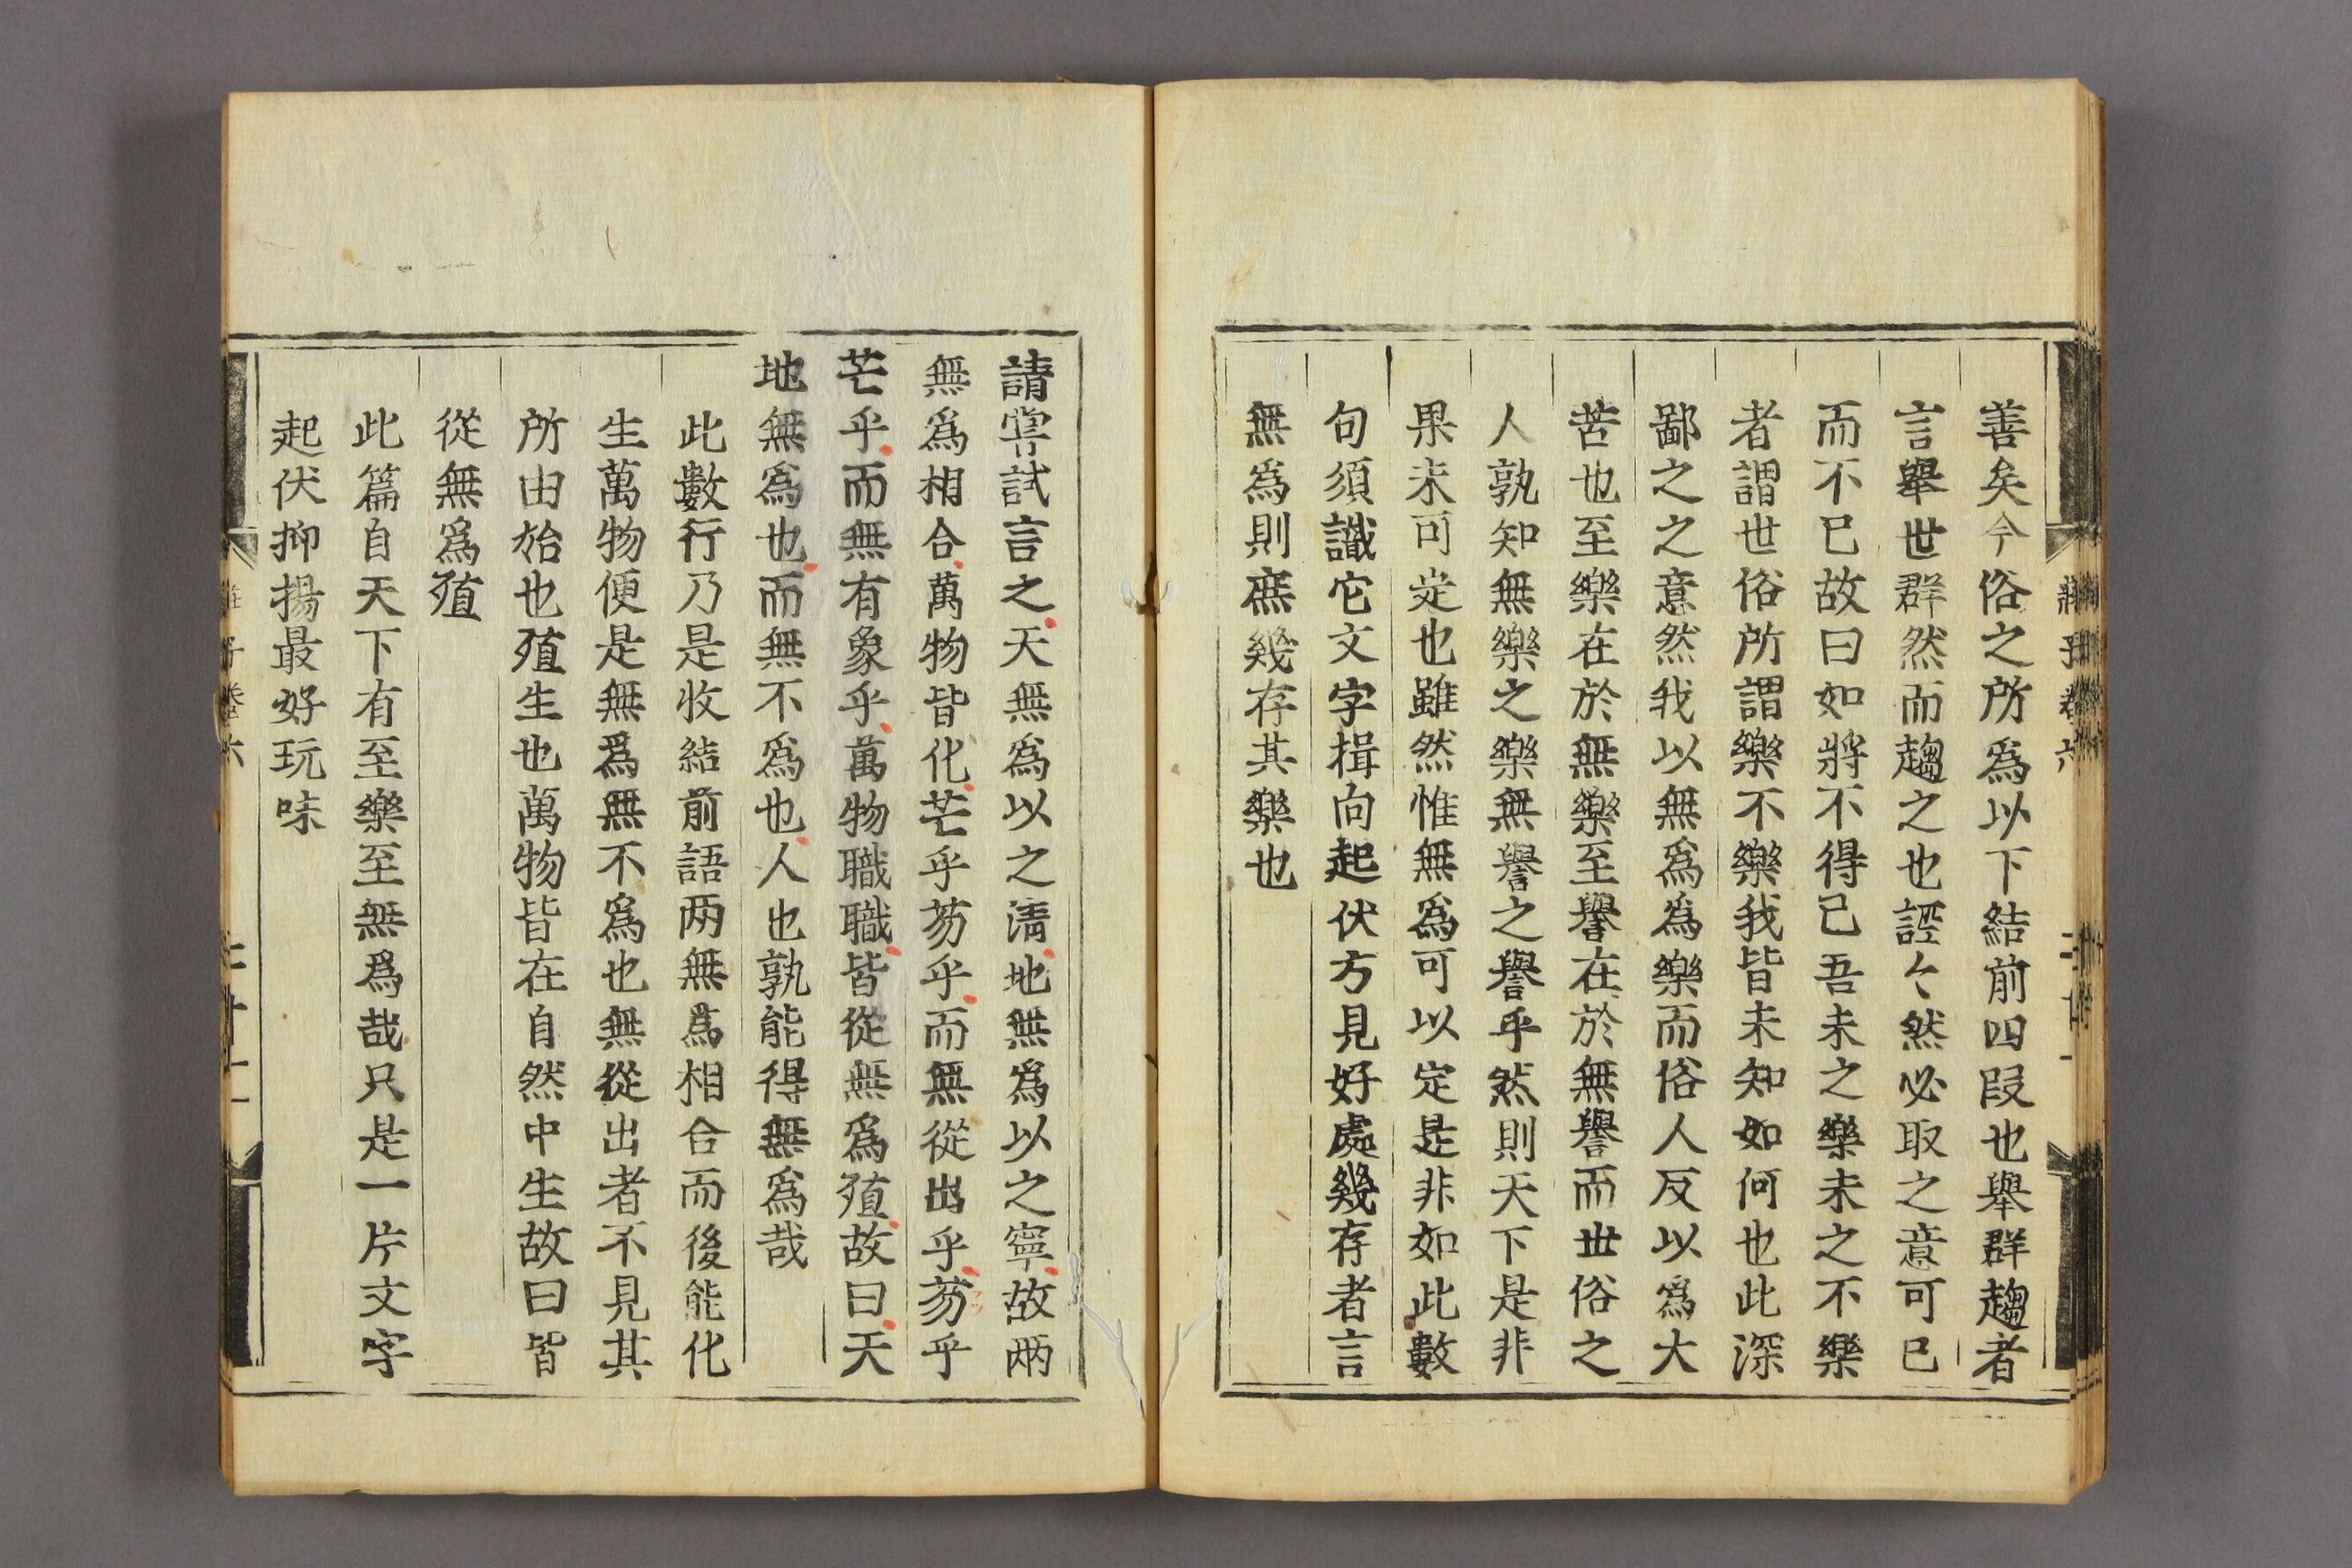 善矣今俗之所爲以下結前四段也舉群趨者
言舉世群然而趨之也誙々然必取之意可已
而不已故曰如將不得已吾未之樂未之不樂
者謂世俗所謂樂不樂我皆未知如何也此深
鄙之之意然我以無爲爲樂而俗人反以爲大
苦也至樂在於無樂至譽在於無譽而世俗之
人孰知無樂之樂無譽之譽乎然則天下是非
果未可定也雖然惟無爲可以定是非如此數
句須識它文字揖向起伏方見好處幾存者言
無爲則庶幾存其樂也
請嘗試言之天無爲以之清地無爲以之寧故兩
無爲相合萬物皆化芒乎芴乎而無從出乎芴乎
芒乎而無有象乎萬物職職皆從無爲殖故曰天
地無爲也而無不爲也人也孰能得無爲哉
此數行乃是收結前語两無爲相合而後能化
生萬物便是無爲無不爲也無從出者不見其
所由始也殖生也萬物皆在自然中生故曰皆
從無爲殖
此篇自天下有至樂至無爲哉只是一片文字
起伏抑揚最好玩味
莊子卷六